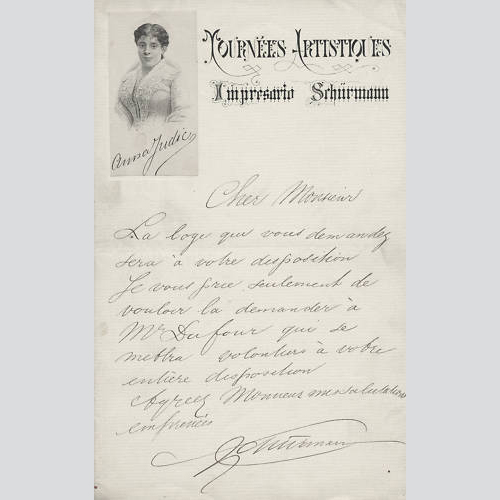 Tournées Artistiques
Impresario Schürmann
Anna Judic
Cher Monsieur
La loge que vous demandez
sera à votre disposition
Je vous prie seulement de
vouloir la demander à
Mr Dufour que se
mettra volontiers à votre
entière disposition
Agréez Monsieur mes salutations
empressées
Schürmann